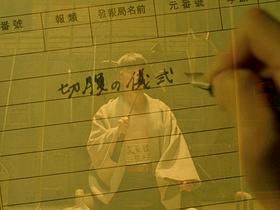 番號 報類 發報局名前 元番號
切腹の儀式